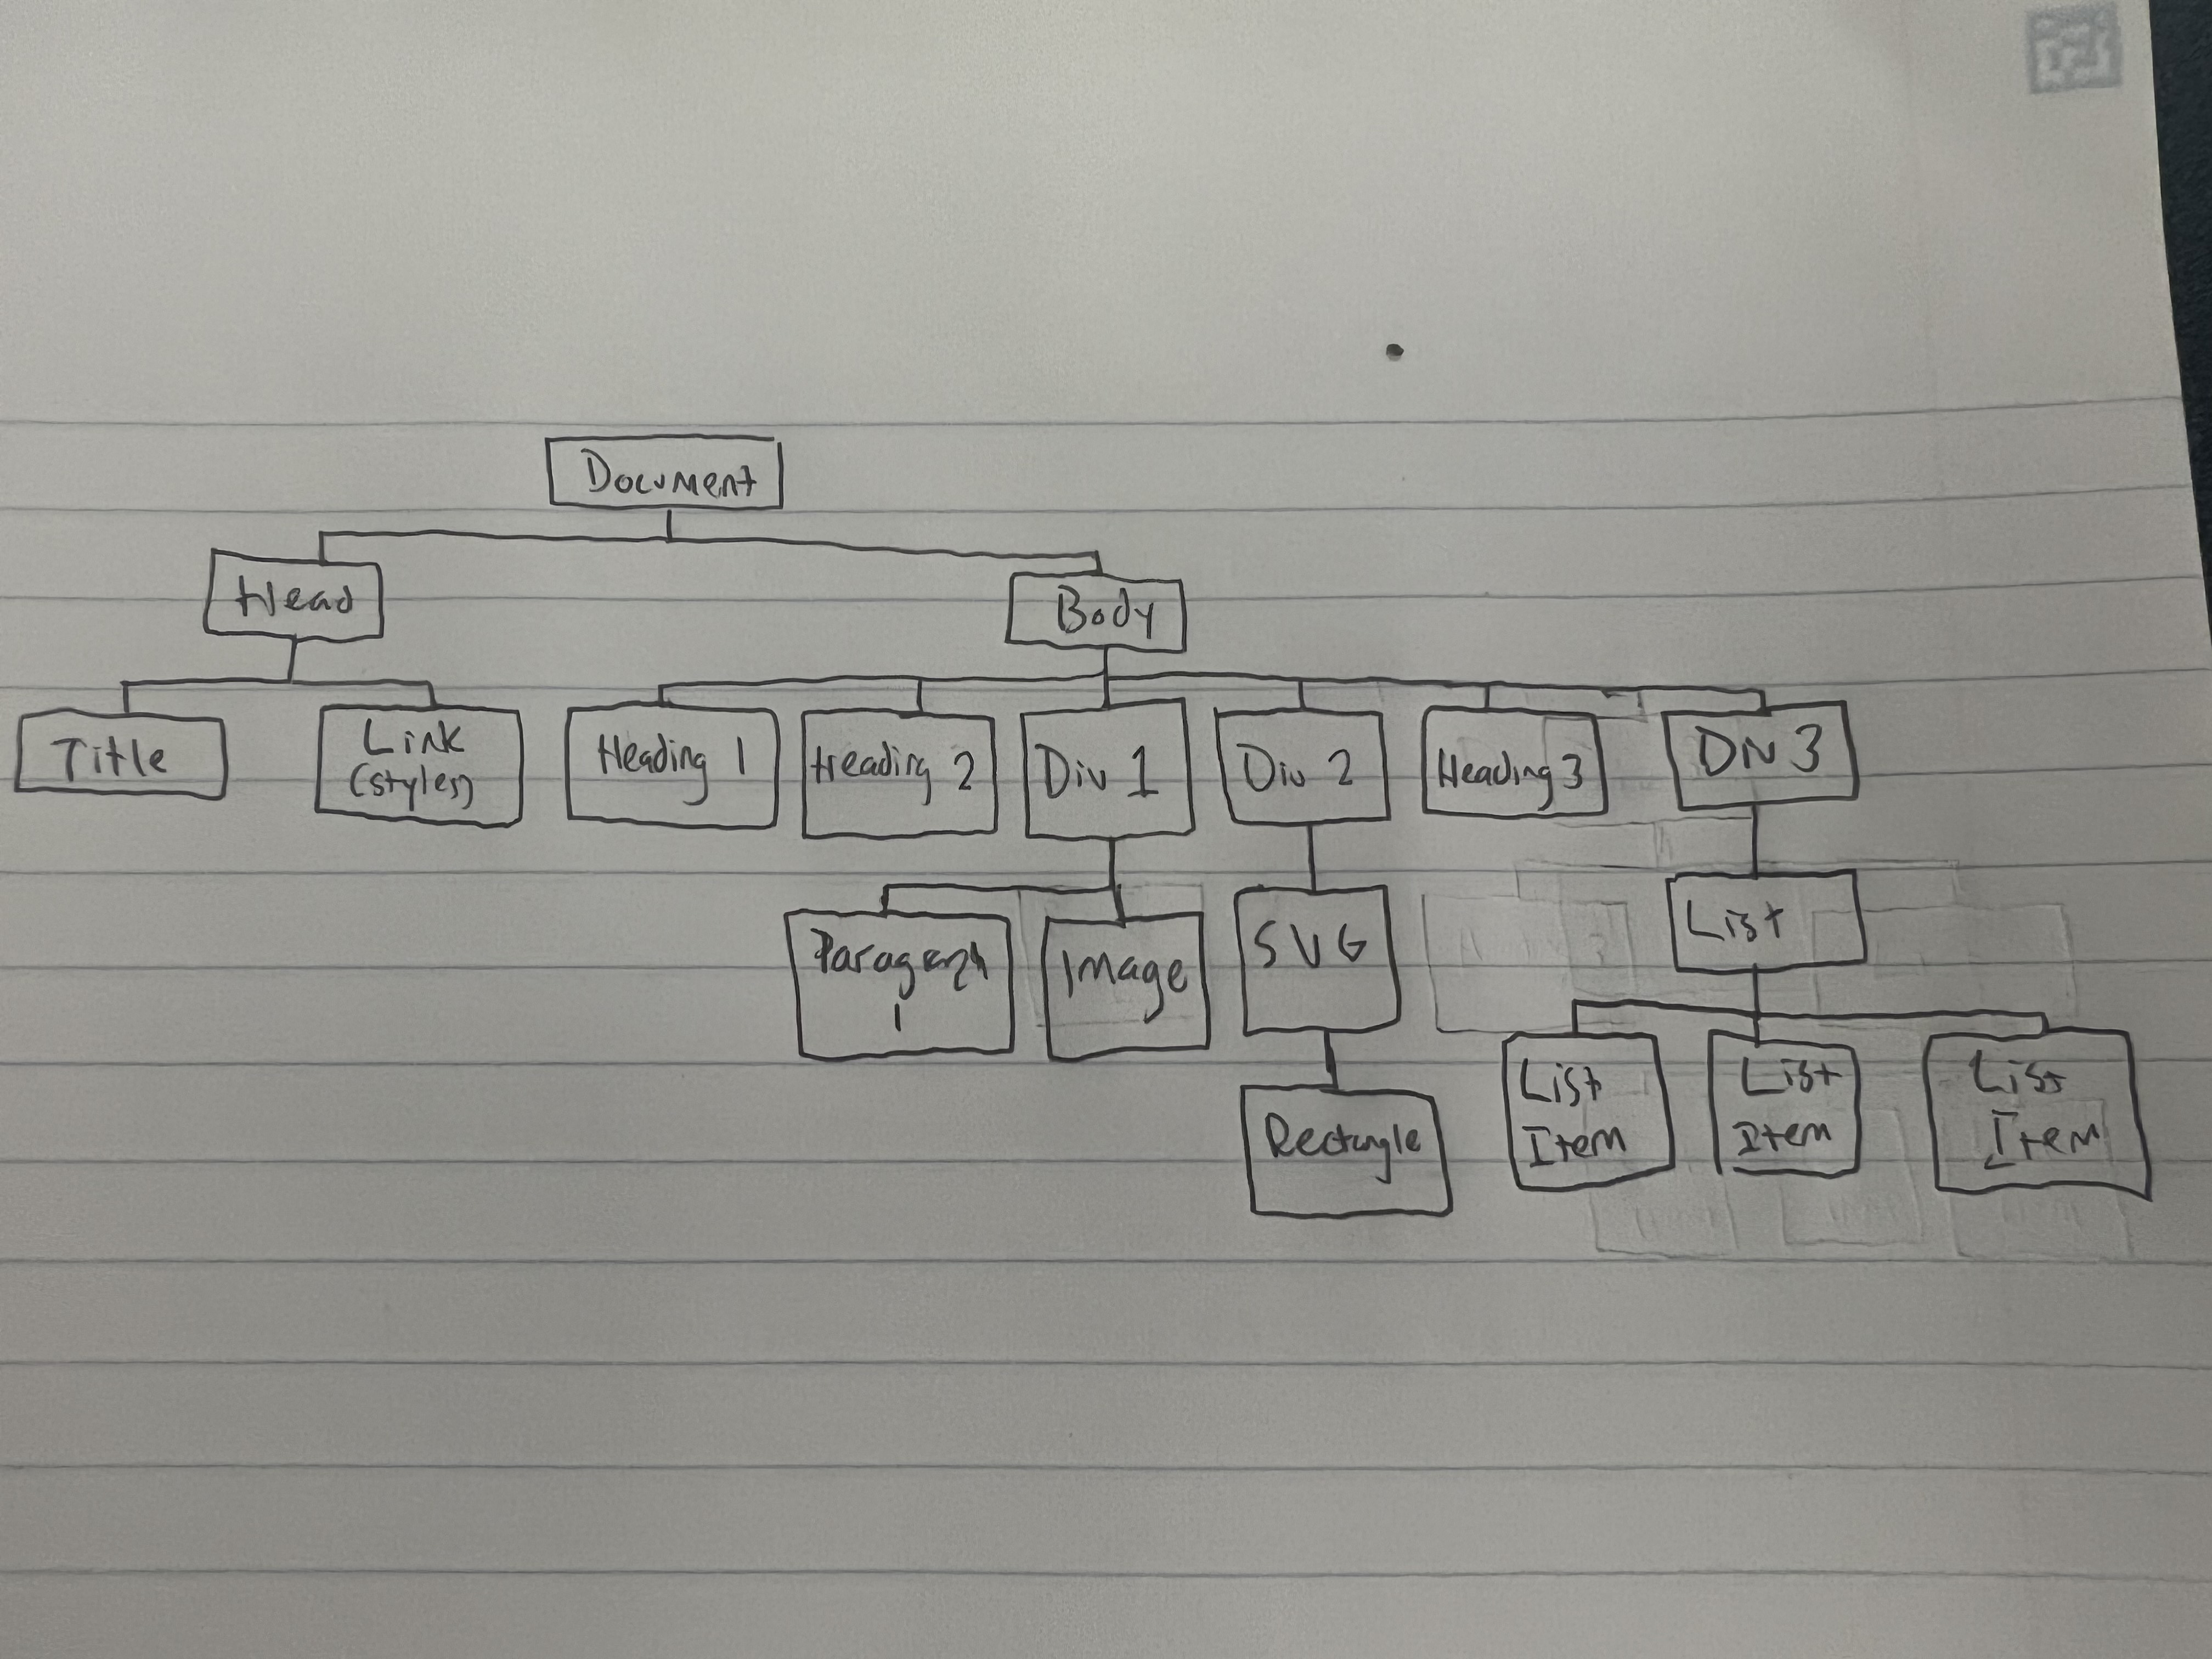 Document
Head
Body
Title
Link
(styles)
Heading 1
Heading 2
Div 1
Div 2
Heading 3
Div 3
Paragraph
1
Image
SVG
List
Rectangle
List
Item
List
Item
List
Item